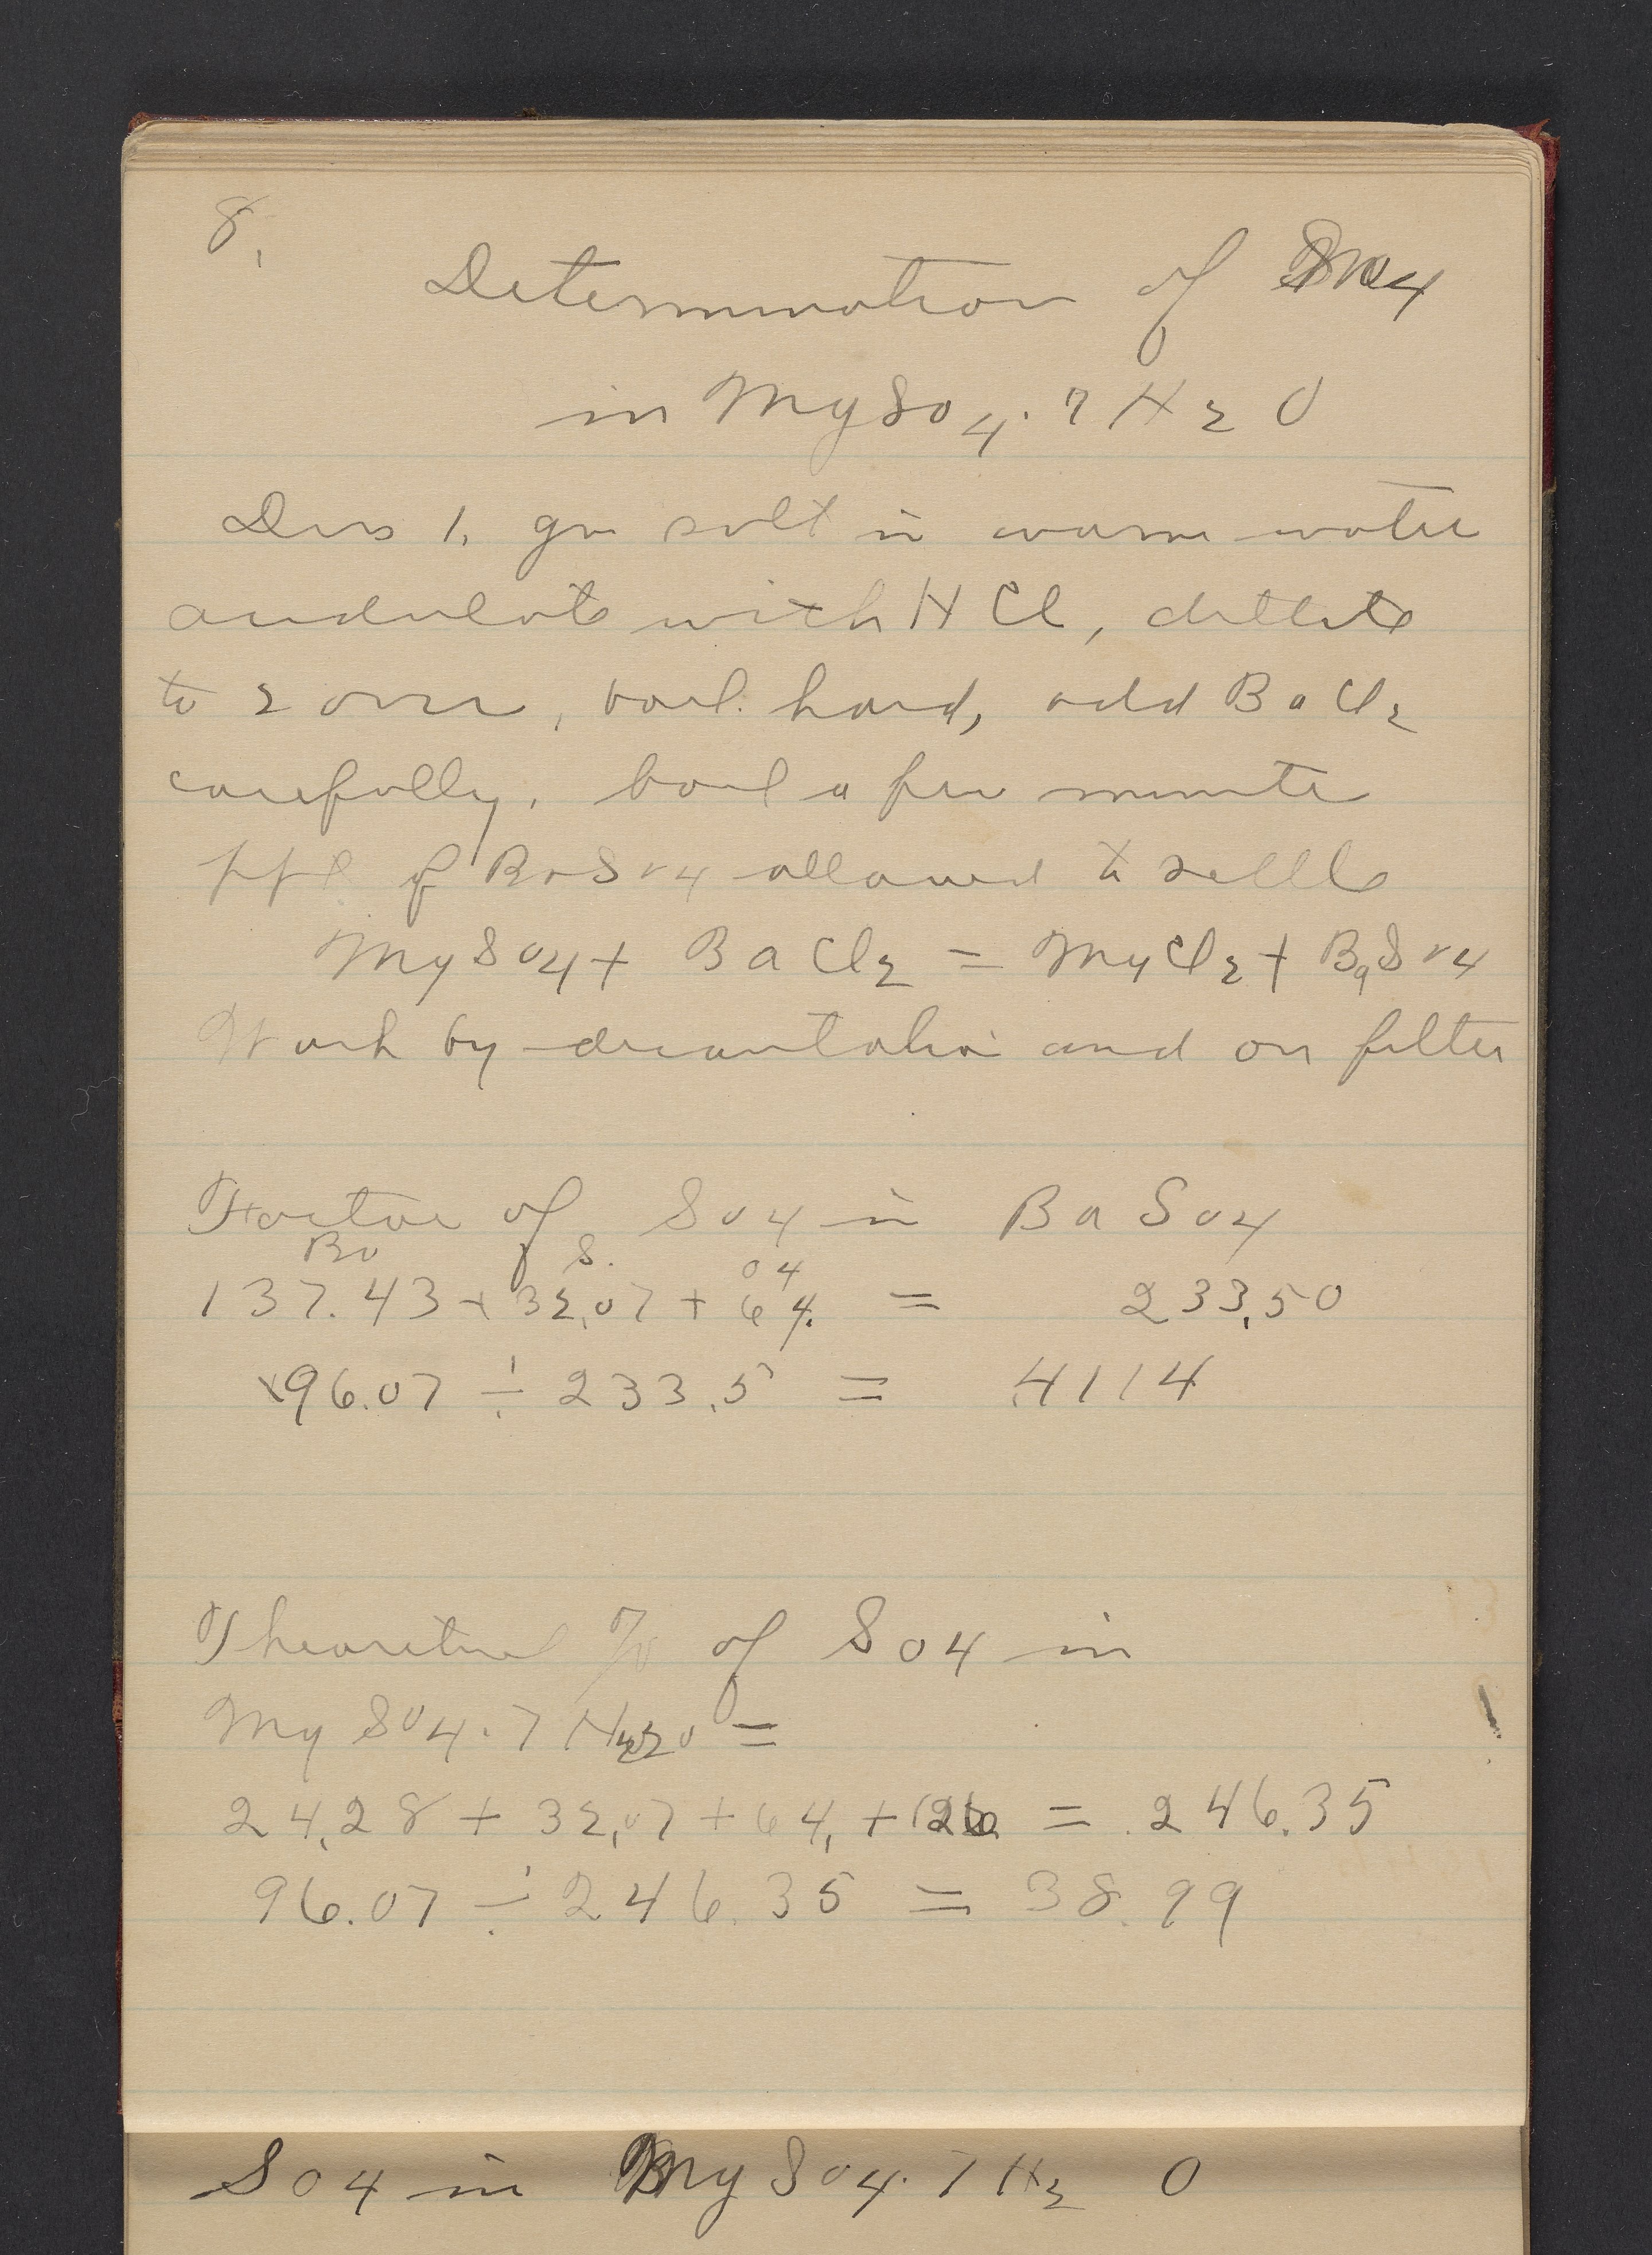 8.
Determination of SO4
in MgSO4·7H2O
Diss 1. gm salt in warm water
acidulate with HCl, dillute
to 200cc, boil hard, add BaCl2
carefully. boil a few minutes
ppt of BaSO4 allowed to settle
MgSO4 + BaCl2 = MgCl2 + BaSO4
Wash by decantation and on filter
Factor of SO4 in BaSO4
Ba S. O4
137.43 + 32.07 + 64. = 233.50
96.07 ÷ 233.5 = .4114
Theoretical % of SO4 in
MgSO4·7H2O =
24.28 + 32.07 + 64. + 126. = 246.35
96.07 ÷ 246.35 = 38.99
SO4 in MgSO4·7H2O